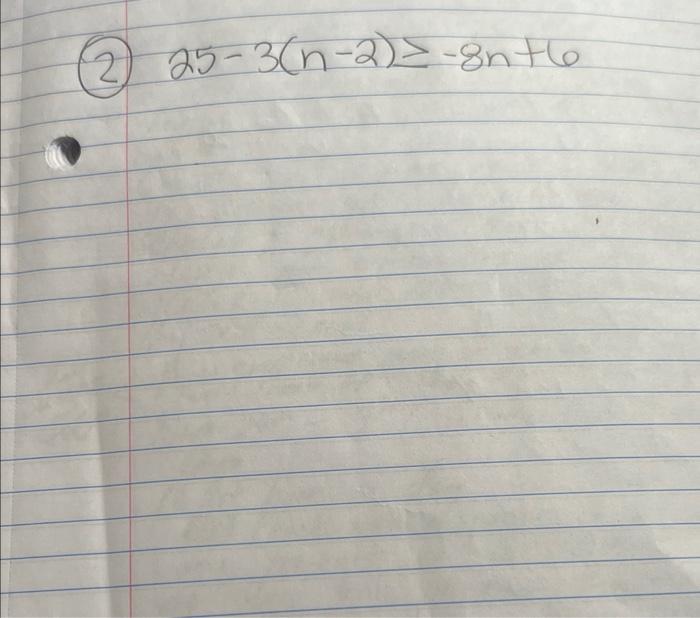 ② 25-3(n-2)≥-8n+6